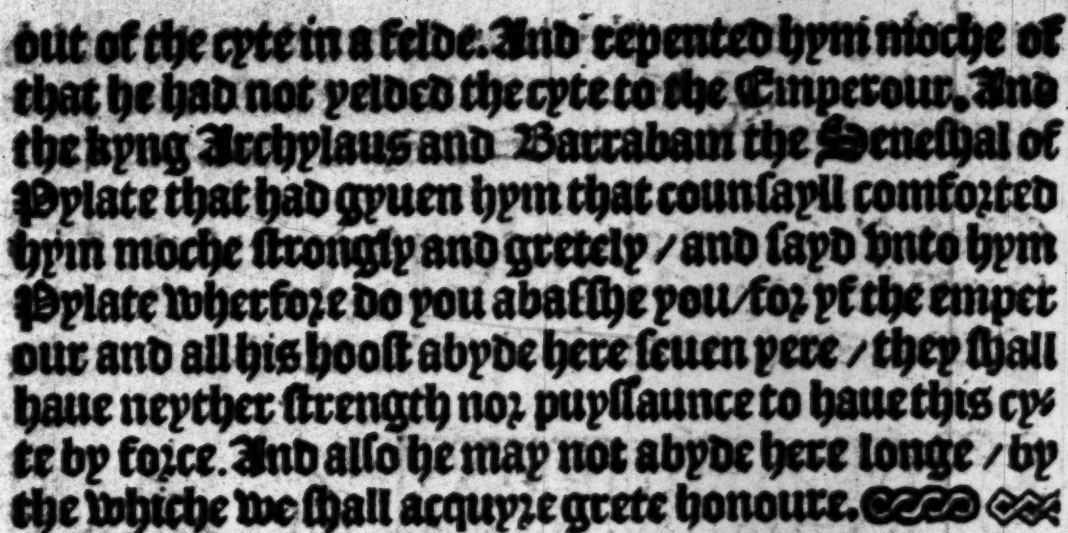 out of the cyte in a felde. And repented hym moche of
that he had not yelded the cyte to the Emperour. And
the kyng Archylaus and Barrabam the Seneſhal of
Pylate that had gyuen hym that counſayll comfoꝛted
hym moche ſtrongly and gretely / and ſayd vnto hym
Pylate wherfoꝛe do you abaſſhe you / foꝛ yf the emper
our and all his hooſt abyde here ſeuen yere / they ſhall
haue neyther ſtrength noꝛ puyſſaunce to haue this cy⸗
te by foꝛce. And alſo he may not abyde here longe / by
the whiche we ſhall acquyꝛe grete honoure.